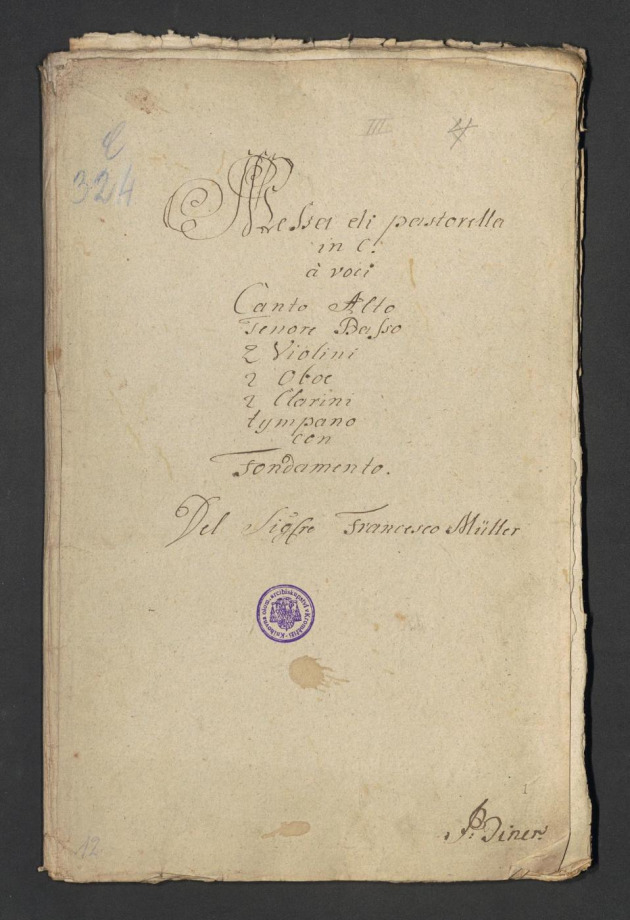 III
4
E
324
Messa di pastorella
in C.
à voci
Canto Alto
Tenore Basso
2 Violini
2 Oboe
2 Clarini
tympano
con
Fondamento.
Del Sigre Francesco Müller
Knihovna olom. arcibiskupství v Kroměříži
1
P: Diner
12